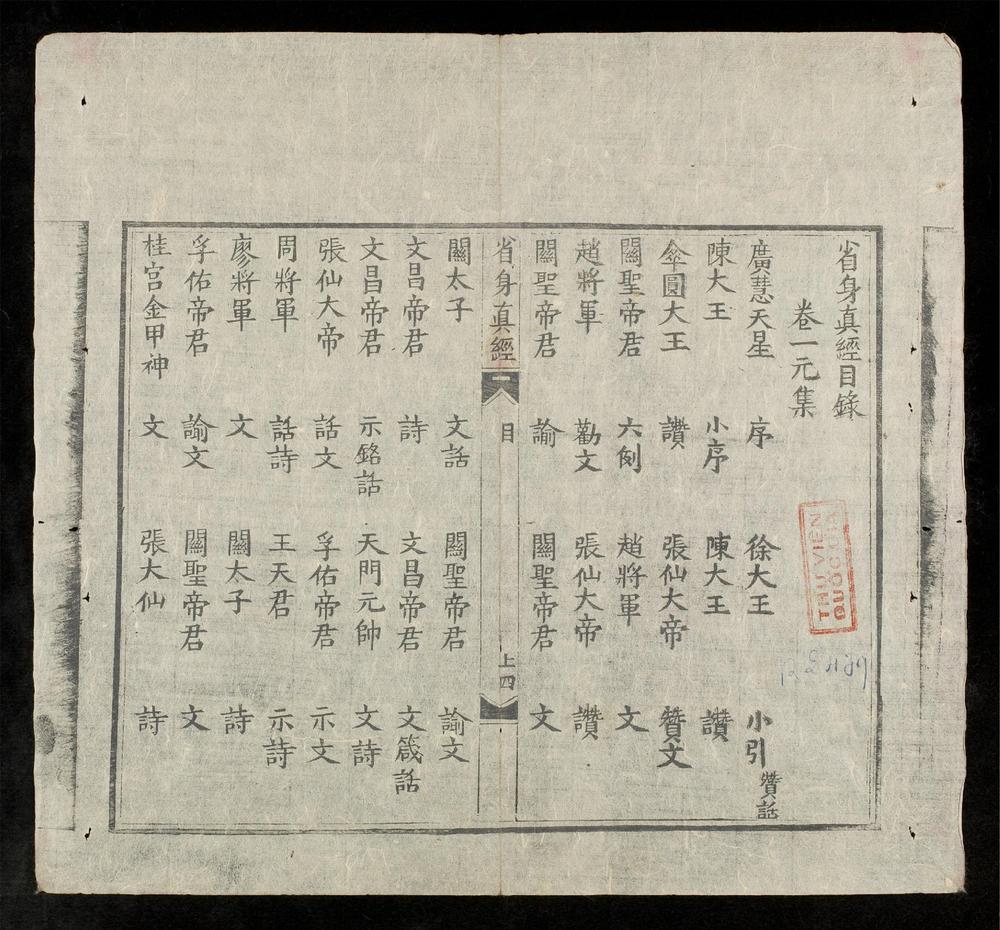 省身真經目錄
卷一元集
廣慧天星 序 徐大王 小引 讚話
陳大王 小序 陳大王 讚
傘圓大王 讚 張仙大帝 贊文
關聖帝君 六則 趙將軍 文
趙將軍 勸文 張仙大帝 讚
關聖帝君 諭 關聖帝君 文
省身真經 一 目 上四
關太子 文話 關聖帝君 諭文
文昌帝君 詩 文昌帝君 文箴話
文昌帝君 示銘話 天門元帥 文詩
張仙大帝 話文 孚佑帝君 示文
周將軍 話詩 王天君 示詩
廖將軍 文 關太子 詩
孚佑帝君 諭文 關聖帝君 文
桂宮金甲神 文 張大仙 詩
THƯ VIỆN
QUỐC GIA